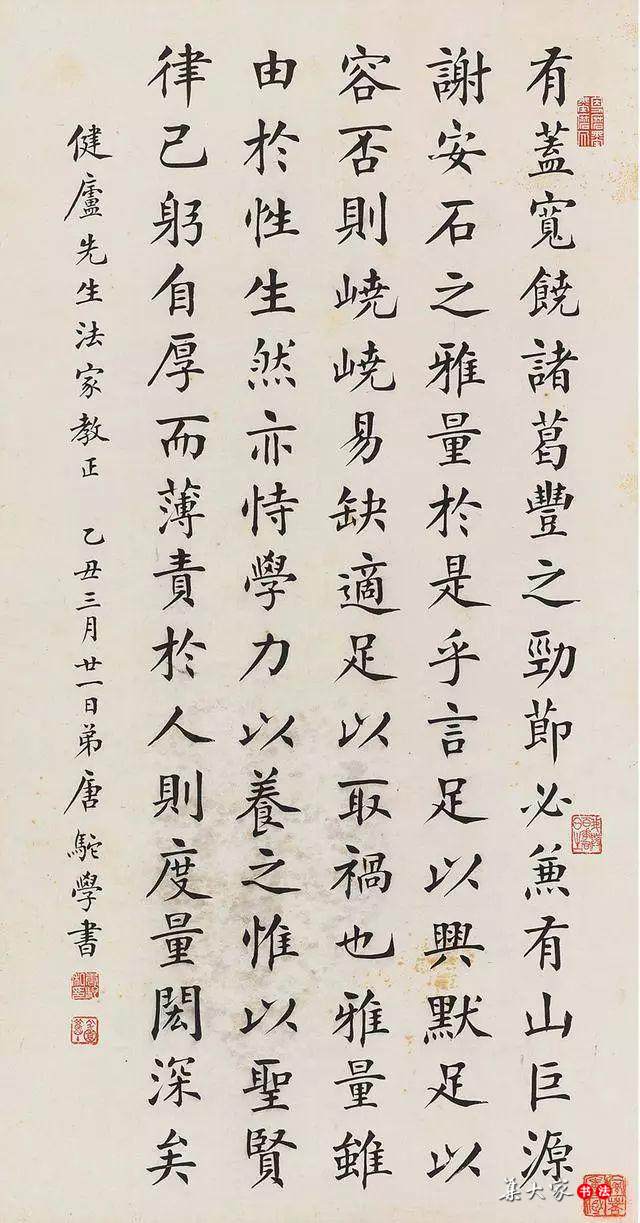 有蓋寬饒諸葛豐之勁節必兼有山巨源
謝安石之雅量於是乎言足以興默足以
容否則嶢嶢易缺適足以取禍也雅量雖
由於性生然亦恃學力以養之惟以聖賢
律己躬自厚而薄責於人則度量閎深矣
健廬先生法家教正 乙丑三月廿一日弟唐駝學書
集大家书法